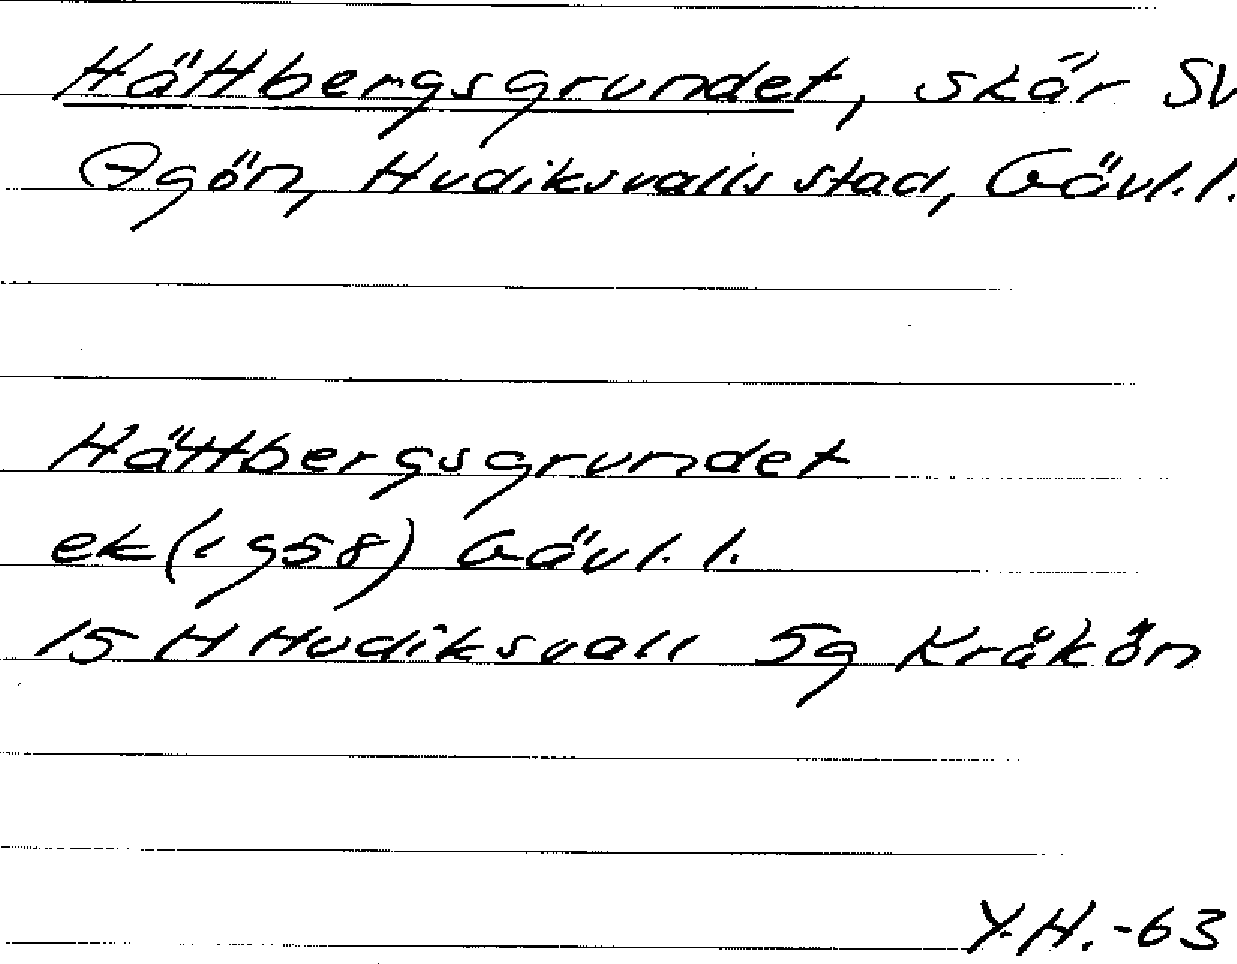 Hättbergsgrundet, skär SV
Agön, Hudiksvalls stad, Gävl.l.
Hättbergsgrundet
ek (1958) Gävl. l.
15 H Hudiksvall 5g Kråkön
Y.H.-63